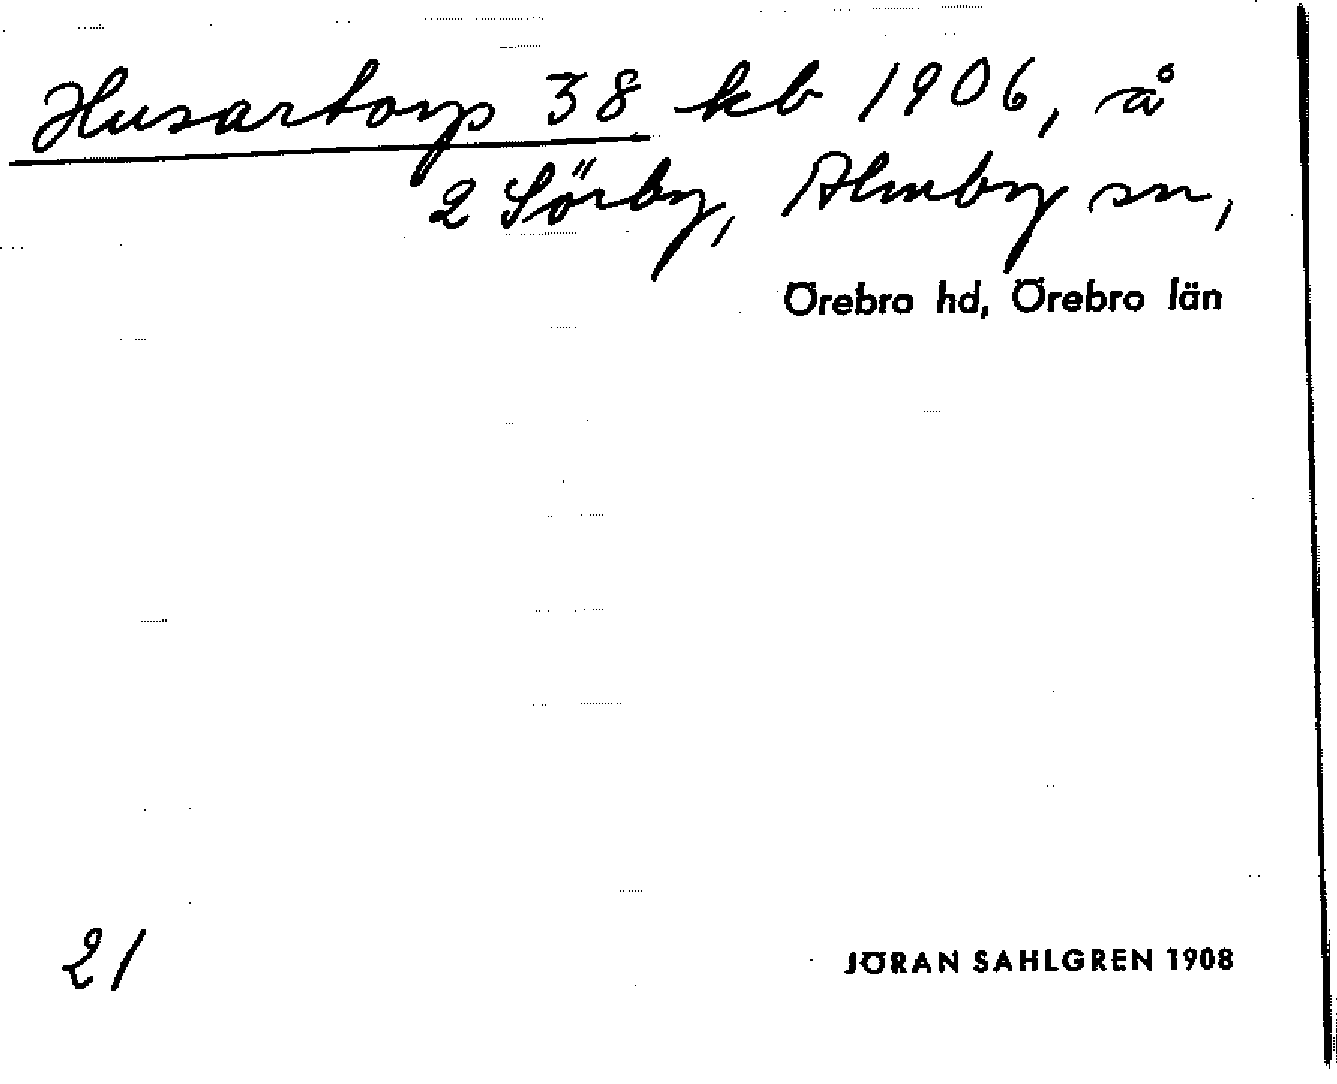 Husartorp 38 kb 1906, å
2 Sörby, Almby sn,
Örebro hd, Örebro län
21
JÖRAN SAHLGREN 1908